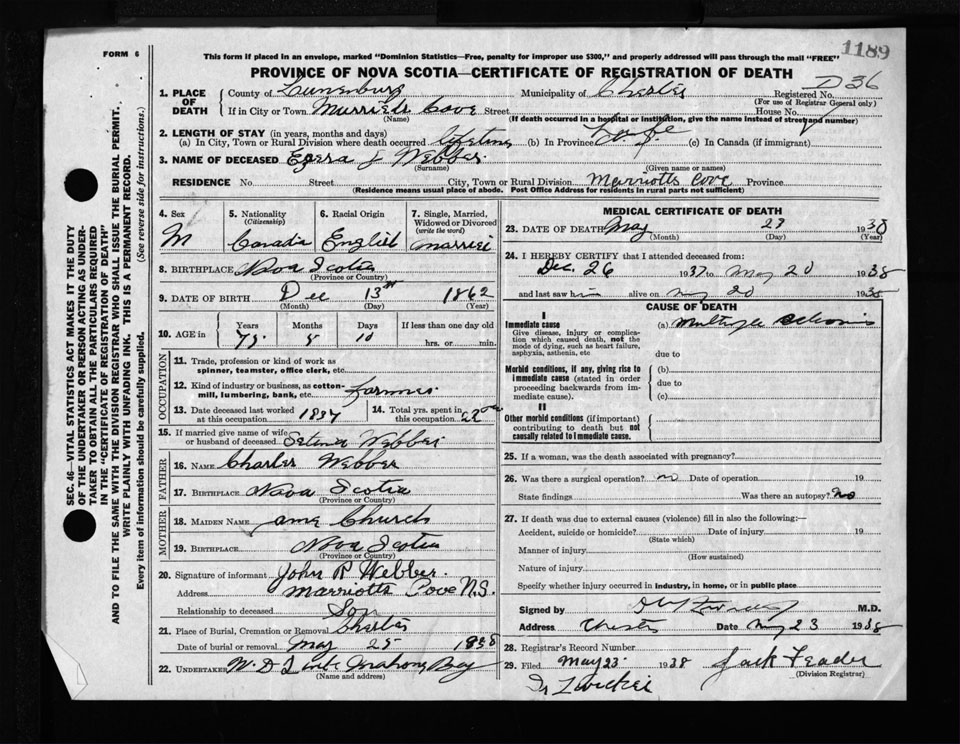 1189
FORM 6
This form if placed in an envelope, marked "Dominion Statistics—Free, penalty for improper use $300," and properly addressed will pass through the mails "FREE"
PROVINCE OF NOVA SCOTIA—CERTIFICATE OF REGISTRATION OF DEATH
D 36
1. PLACE OF DEATH
County of Lunenburg Municipality of Chester Registered No.
(For use of Registrar General only)
If in City or Town Marriotts Cove Street House No.
(Name) (If death occurred in a hospital or institution, give the name instead of street and number)
2. LENGTH OF STAY (in years, months and days)
(a) In City, Town or Rural Division where death occurred lifetime (b) In Province Life (c) In Canada (if immigrant)
3. NAME OF DECEASED Ezera J Webber
(Surname) (Given name or names)
RESIDENCE No. Street City, Town or Rural Division Marriotts Cove Province
(Residence means usual place of abode. Post Office Address for residents in rural parts not sufficient)
4. Sex
M
5. Nationality
(Citizenship)
Canada
6. Racial Origin
English
7. Single, Married, Widowed or Divorced
(write the word)
Married
8. BIRTHPLACE Nova Scotia
(Province or Country)
9. DATE OF BIRTH Dec 13th 1862
(Month) (Day) (Year)
10. AGE in
Years Months Days If less than one day old
75 5 10 hrs. or min.
OCCUPATION
11. Trade, profession or kind of work as
spinner, teamster, office clerk, etc.
12. Kind of industry or business, as cotton-
mill, lumbering, bank, etc. Farmer
13. Date deceased last worked at this occupation 1937
14. Total yrs. spent in this occupation
15. If married give name of wife or husband of deceased Selina Webber
FATHER
16. NAME Charles Webber
17. BIRTHPLACE Nova Scotia
(Province or Country)
MOTHER
18. MAIDEN NAME Church
19. BIRTHPLACE Nova Scotia
(Province or Country)
20. Signature of informant John R Webber
Address Marriotts Cove N.S.
Relationship to deceased Son
21. Place of Burial, Cremation or Removal Chester
Date of burial or removal May 25 1938
22. UNDERTAKER W. D. Bay
(Name and address)
MEDICAL CERTIFICATE OF DEATH
23. DATE OF DEATH May 23 1938
(Month) (Day) (Year)
24. I HEREBY CERTIFY that I attended deceased from:
Dec. 26 1937 to May 20 1938
and last saw him alive on May 20 1938
CAUSE OF DEATH
I
Immediate cause (a) Multiple Sclerosis
Give disease, injury or complication which caused death, not the mode of dying, such as heart failure, asphyxia, asthenia, etc
due to
Morbid conditions, if any, giving rise to immediate cause (stated in order proceeding backwards from immediate cause).
(b)
due to
(c)
II
Other morbid conditions (if important) contributing to death but not causally related to immediate cause.
25. If a woman, was the death associated with pregnancy?
26. Was there a surgical operation? no Date of operation 19
State findings Was there an autopsy? No
27. If death was due to external causes (violence) fill in also the following:—
Accident, suicide or homicide? Date of injury 19
(State which)
Manner of injury
(How sustained)
Nature of injury
Specify whether injury occurred in industry, in home, or in public place
Signed by M.D.
Address Chester Date May 23 1938
28. Registrar's Record Number
29. Filed May 23 1938 Jack Feader
(Division Registrar)
Dr Zwicker
SEC. 46—VITAL STATISTICS ACT MAKES IT THE DUTY
OF THE UNDERTAKER OR PERSON ACTING AS UNDER-
TAKER TO OBTAIN ALL THE PARTICULARS REQUIRED
IN THE "CERTIFICATE OF REGISTRATION OF DEATH"
AND TO FILE THE SAME WITH THE DIVISION REGISTRAR WHO SHALL ISSUE THE BURIAL PERMIT.
WRITE PLAINLY WITH UNFADING INK. THIS IS A PERMANENT RECORD.
Every item of information should be carefully supplied. (See reverse side for instructions.)